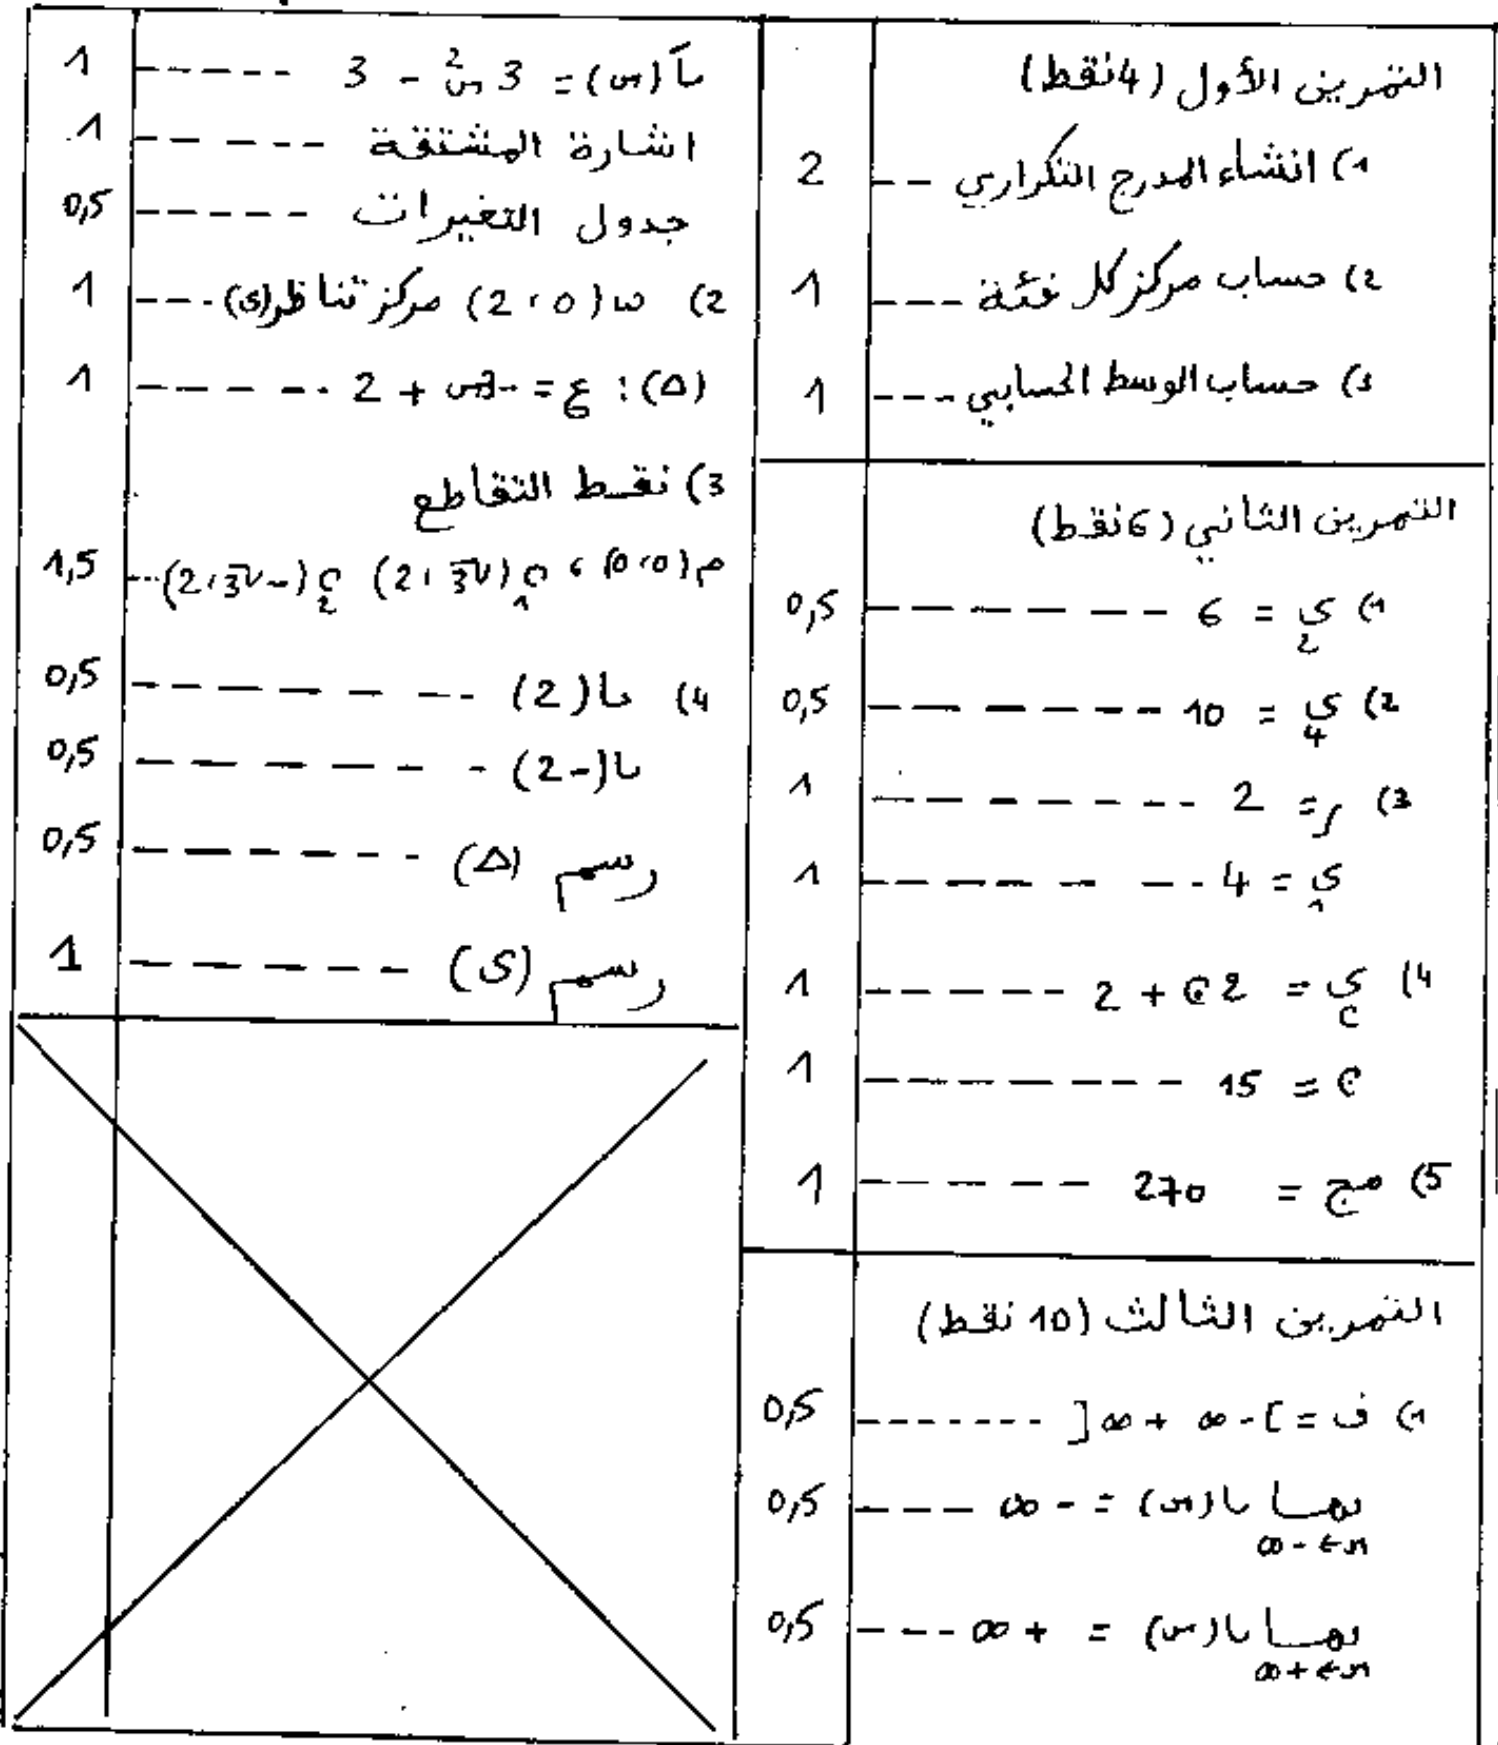 التمرين الأول (4 نقط)
1) انشاء المدرج التكراري -- 2
2) حساب مركز كل فئة --- 1
3) حساب الوسط الحسابي --- 1
التمرين الثاني (6 نقط)
1) ي2 = 6 ------- 0,5
2) ي4 = 10 ------- 0,5
3) ر = 2 ------- 1
ي1 = 4 ------- 1
4) ين = 2ن + 2 ----- 1
ن = 15 ------- 1
5) مج = 270 ----- 1
التمرين الثالث (10 نقط)
1) ف = ]-∞ +∞[ ------ 0,5
نهـــا تا(س) = -∞ ---- 0,5
س←-∞
نهـــا تا(س) = +∞ --- 0,5
س←+∞
تاَ(س) = 3س² - 3 ---- 1
اشارة المشتقة ------ 1
جدول التغيرات ----- 0,5
2) ω(0، 2) مركز تناظر (ي) --- 1
(Δ): ع = -3س + 2 ----- 1
3) نقــط التقاطع
م(0،0) ، ن1(√3، 2) ن2(-√3، 2) --- 1,5
4) تا(2) -------- 0,5
تا(-2) -------- 0,5
رسم (Δ) ------- 0,5
رسم (ي) ------- 1